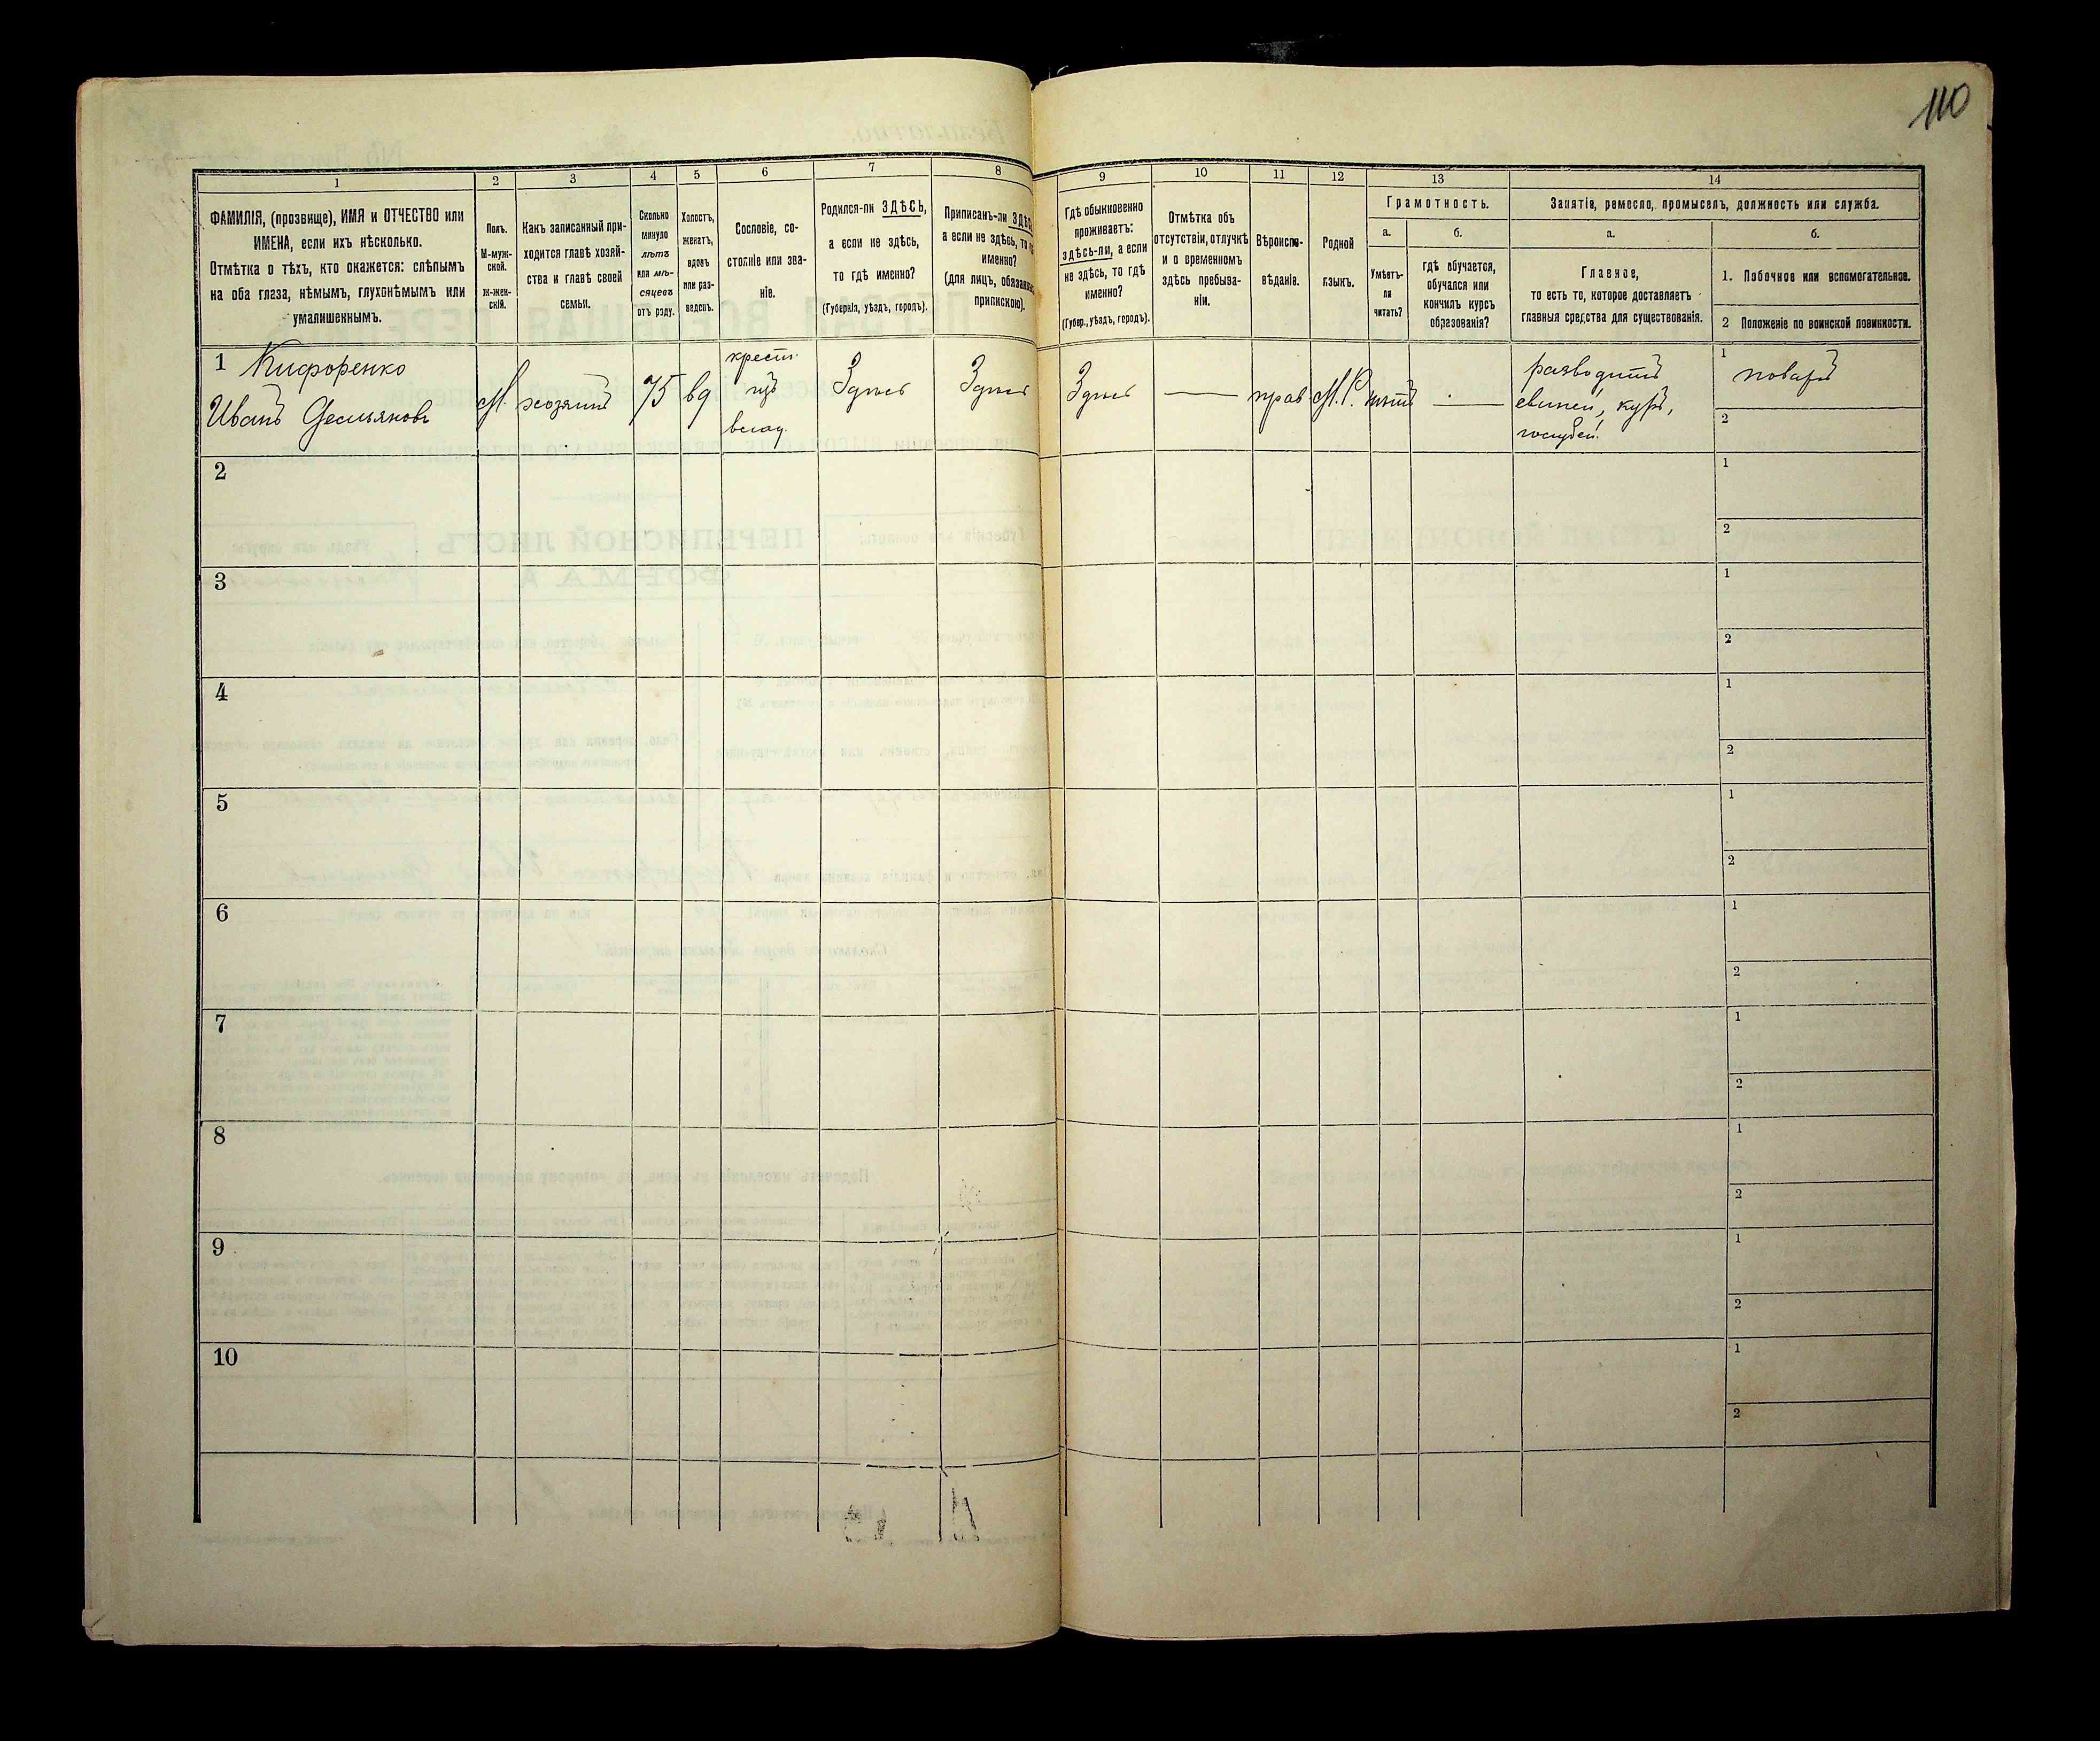 110
1
2
3
4
5
6
7
8
9
10
11
12
13
14
ФАМИЛІЯ, (прозвище), ИМЯ и ОТЧЕСТВО или
ИМЕНА, если ихъ нѣсколько.
Отмѣтка о тѣхъ, кто окажется: слѣпымъ
на оба глаза, нѣмымъ, глухонѣмымъ или
умалишеннымъ.
Полъ.
М-муж-
ской.
Ж-жен-
скій.
Какъ записанный при-
ходится главѣ хозяй-
ства и главѣ своей
семьи.
Сколько
минуло
лѣтъ
или мѣ-
сяцевъ
отъ роду.
Холостъ,
женатъ,
вдовъ
или раз-
веденъ.
Сословіе, со-
стояніе или зва-
ніе.
Родился-ли ЗДѢСЬ,
а если не здѣсь,
то гдѣ именно?
(Губернія, уѣздъ, городъ).
Приписанъ-ли
а если не здѣсь, то
именно?
(для лицъ,
припискою).
Гдѣ обыкновенно
проживаетъ:
здѣсь-ли, а если
не здѣсь, то гдѣ
именно?
(Губер., уѣздъ, городъ).
Отмѣтка объ
отсутствіи, отлучкѣ
и о временномъ
здѣсь пребыва-
ніи.
Вѣроиспо-
вѣданіе.
Родной
языкъ.
Грамотность.
а.
Умѣетъ-
ли
читать?
б.
гдѣ обучается,
обучался или
кончилъ курсъ
образованія?
Занятіе, ремесло, промыселъ, должность или служба.
а.
Главное,
то есть то, которое доставляетъ
главныя средства для существованія.
б.
1. Побочное или вспомогательное.
2 Положеніе по воинской повинности.
1 Никифоренко
Иванъ Демьяновъ
М.
хозяинъ
75
вд
крест.
изъ
влад.
Здѣсь
Здѣсь
Здѣсь
—
прав.
М.Р.
нѣтъ
—
разводитъ
свиней, куръ,
голубей.
1 поваръ
2
2
1
2
3
1
2
4
1
2
5
1
2
6
1
2
7
1
2
8
1
2
9
1
2
10
1
2